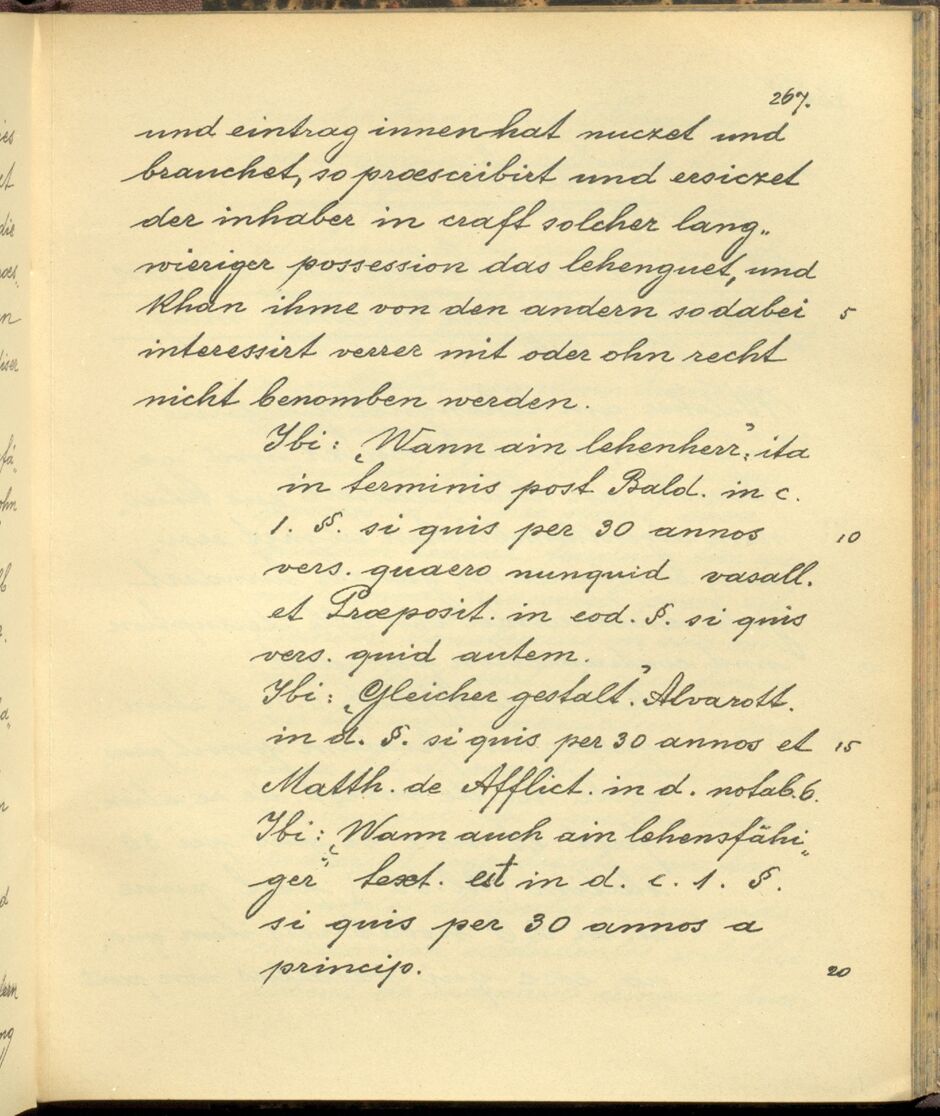 267.
und eintrag innen hat nuczet und
brauchet, so præscribirt und ersiczet
der inhaber in craft solcher lang„
wieriger possession das lehenguet, und
khan ihme von den andern so dabei 5
interessirt verrer mit oder ohn recht
nicht benomben werden.
Ibi: „Wann ain lehenherr“: ita
in terminis post Bald. in c.
1. §. si quis per 30 annos 10
vers. quaero nunquid vasall.
et Præposit. in eod. §. si quis
vers. quid autem.
Ibi: „Gleicher gestalt“. Alvarott.
in d. §. si quis per 30 annos et 15
Matth. de Afflict. in d. notab. 6.
Ibi: „Wann auch ain lehensfähi„
ger“ text. est in d. c. 1. §.
si quis per 30 annos a
princip. 20